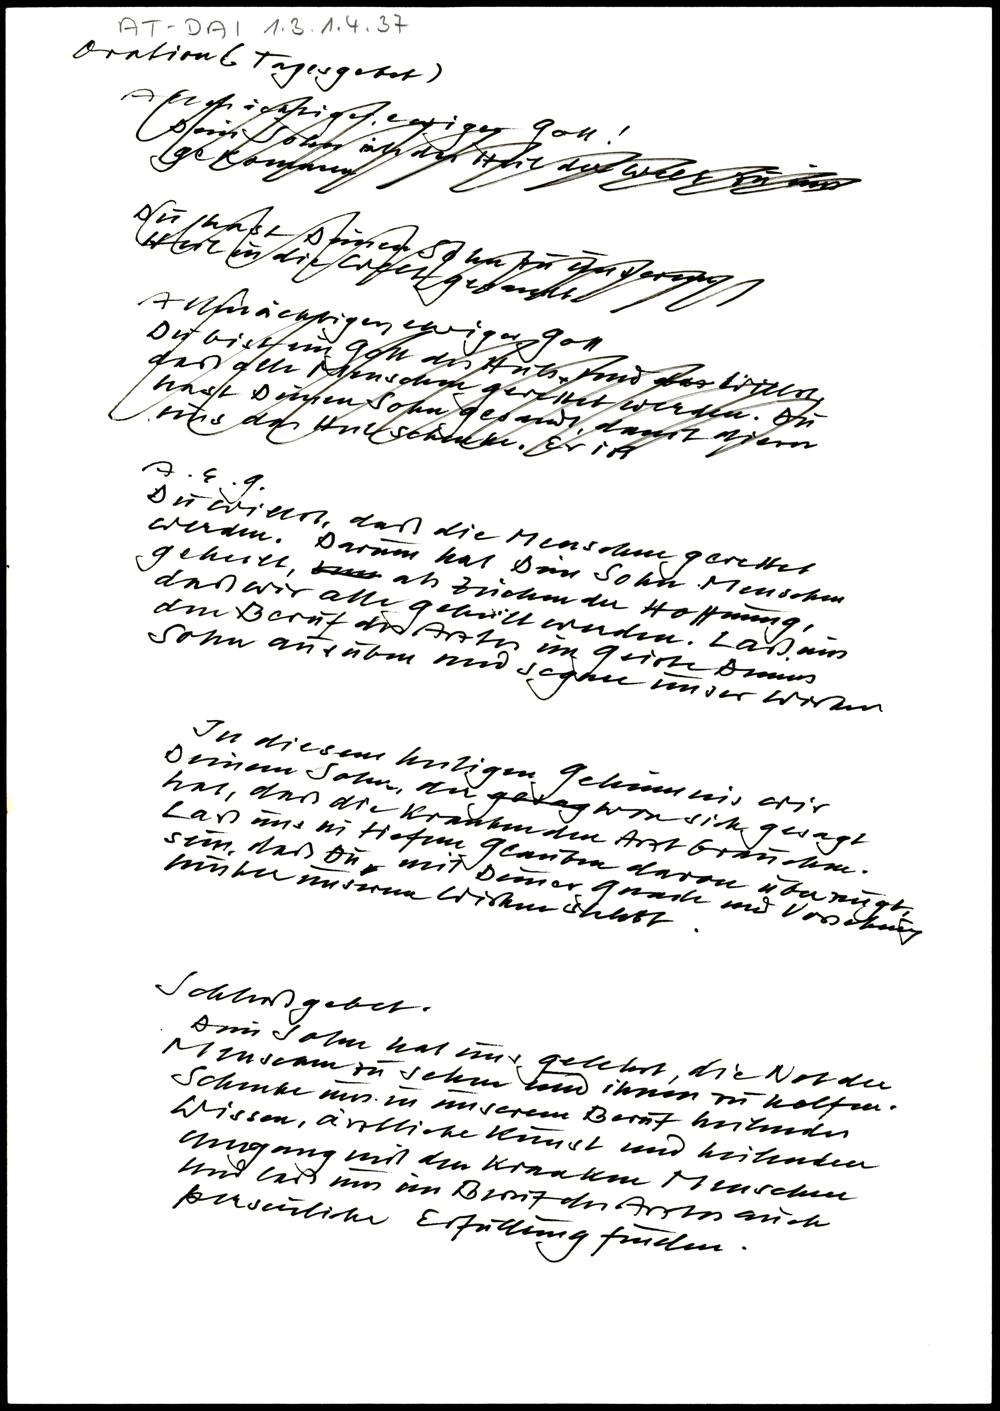 AT-DAI 1.3.1.4.37
Oration (Tagesgebet)
Allmächtiger, ewiger Gott!
Dein Sohn ist das Heil der Welt zu uns
gekommen
Du hast Deinen Sohn zu unserem
Heil in die Welt gesandt
Allmächtiger, ewiger Gott
Du bist ein Gott des Heils und willst,
daß alle Menschen gerettet werden. Du
hast Deinen Sohn gesandt, damit dieser
uns das Heil schenke. Er ist
A. E. G.
Du willst, daß die Menschen gerettet
werden. Darum hat Dein Sohn Menschen
geheilt, als Zeichen der Hoffnung,
daß wir alle geheilt werden. Laß uns
den Beruf des Arztes im Geiste Deines
Sohn ausüben und segne unser Wirken
In diesem heiligen Geheimnis wir
Deinem Sohn, der gesagt von sich gesagt
hat, daß die Kranken den Arzt brauchen.
Laß uns in tiefem Glauben davon überzeugt
sein, daß Du mit Deiner Gnade und Vorsehung
hinter unserem Wirken stehst.
Schlußgebet.
Dein Sohn hat uns gelehrt, die Not der
Menschen zu sehen und ihnen zu helfen.
Schenke uns in unserem Beruf heilendes
Wissen, ärztliche Kunst und heilenden
Umgang mit den kranken Menschen
und laß uns im Beruf des Arztes auch
persönliche Erfüllung finden.